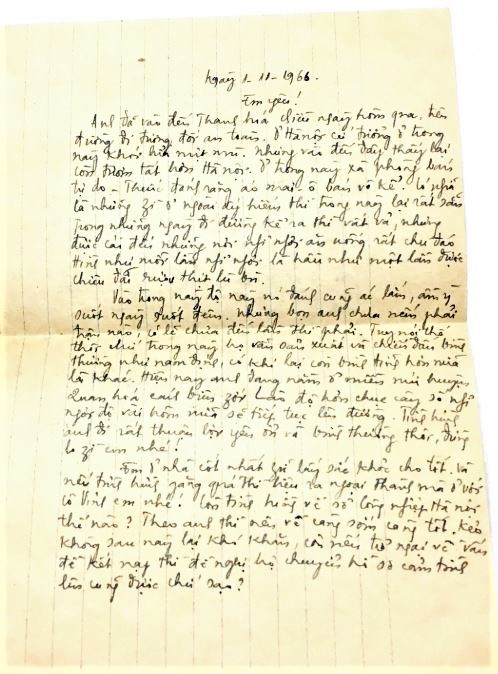 Ngày 1-11-1966.
Em yêu!
Anh đã vào đến Thanh hoá chiều ngày hôm qua, trên
đường đi tương đối an toàn. Ở Hà nội cứ tưởng ở trong
này khói lửa mịt mù. Nhưng vào đến đây thấy lại
còn hơn Hà nội. Ở trong này xà phòng bán
tự do - Thuốc đánh răng áo may ô bán vô kể.
là những ở ngoài ấy hiếm thì trong này lại rất sẵn
Trong những ngày đi đường kể ra thì vất vả, nhưng
được cái đến những nơi nghỉ ngơi ăn uống rất chu đáo
Hình như mỗi lần nghỉ ngơi là hầu như một lần được
chiêu đãi thịt
Vào trong này độ này nó đánh cũng ác lắm, ầm ỹ
suốt ngày suốt đêm. Nhưng bọn anh chưa nếm phải
trận nào, có lẽ chưa đến lần thì phải. Tuy nói thế
thôi chứ trong này họ vẫn sản xuất và chiến đấu bình
thường như năm, có khi lại còn bình tĩnh hơn nữa
là khác. Hiện nay anh đang nằm ở miền núi huyện
Quan hoá cách biên giới Lào độ hơn chục cây số nghỉ
ngơi độ vài hôm nữa sẽ tiếp tục lên đường. Tình hình
anh đi rất thuận lợi yên ổn và bình thường thôi, đừng
lo gì em nhé!
Em ở nhà cốt nhất giữ lấy sức khoẻ cho tốt. Và
nếu tình hình găng quá thì liệu ra ngoài mà ở với
cô em nhé. Còn tình hình về sở Công nghiệp Hà nội
thế nào? Theo anh thì nên về càng sớm càng tốt, kẻo
không sau này lại khó khăn, còn nếu ngại về vấn
đề kết nạp thì đề nghị họ chuyển hồ sơ cảm tình
lên cũng được chứ sao?